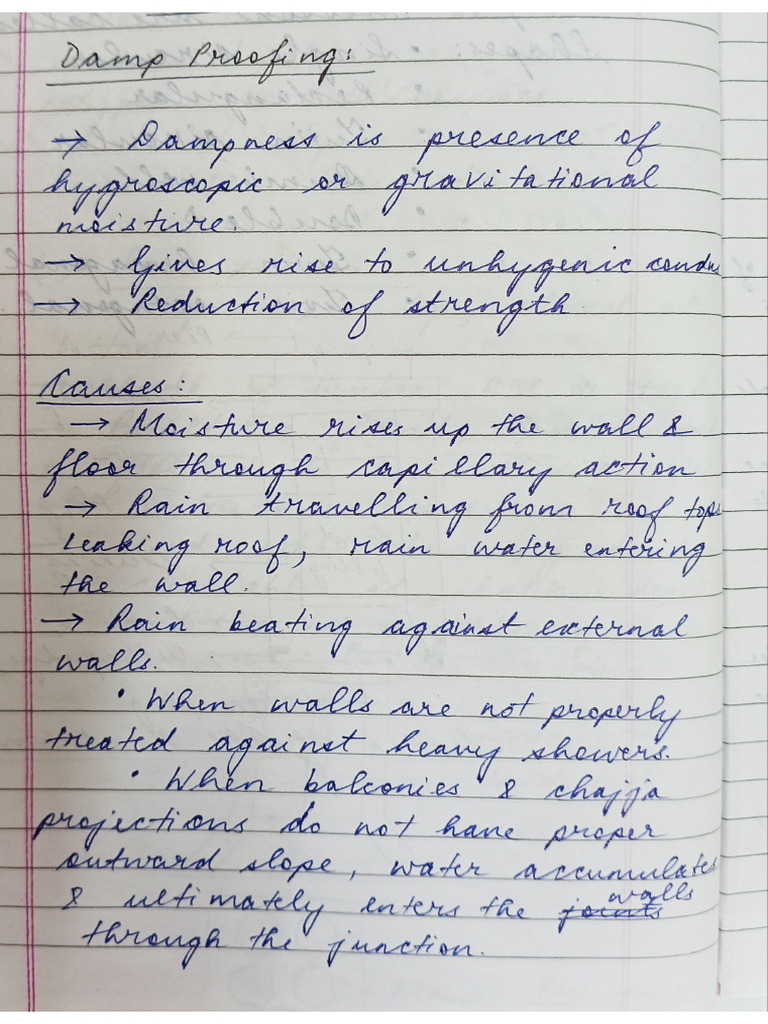 Damp Proofing:
→ Dampness is presence of
hygroscopic or gravitational
moisture.
→ Gives rise to unhygenic
→ Reduction of strength
Causes:
→ Moisture rises up the wall &
floor through capillary action
→ Rain travelling from roof tops
Leaking roof, rain water entering
the wall.
→ Rain beating against external
walls.
• When walls are not properly
treated against heavy showers.
• When balconies & chajja
projections do not have proper
outward slope, water accumulates
& ultimately enters the joints walls
through the junction.